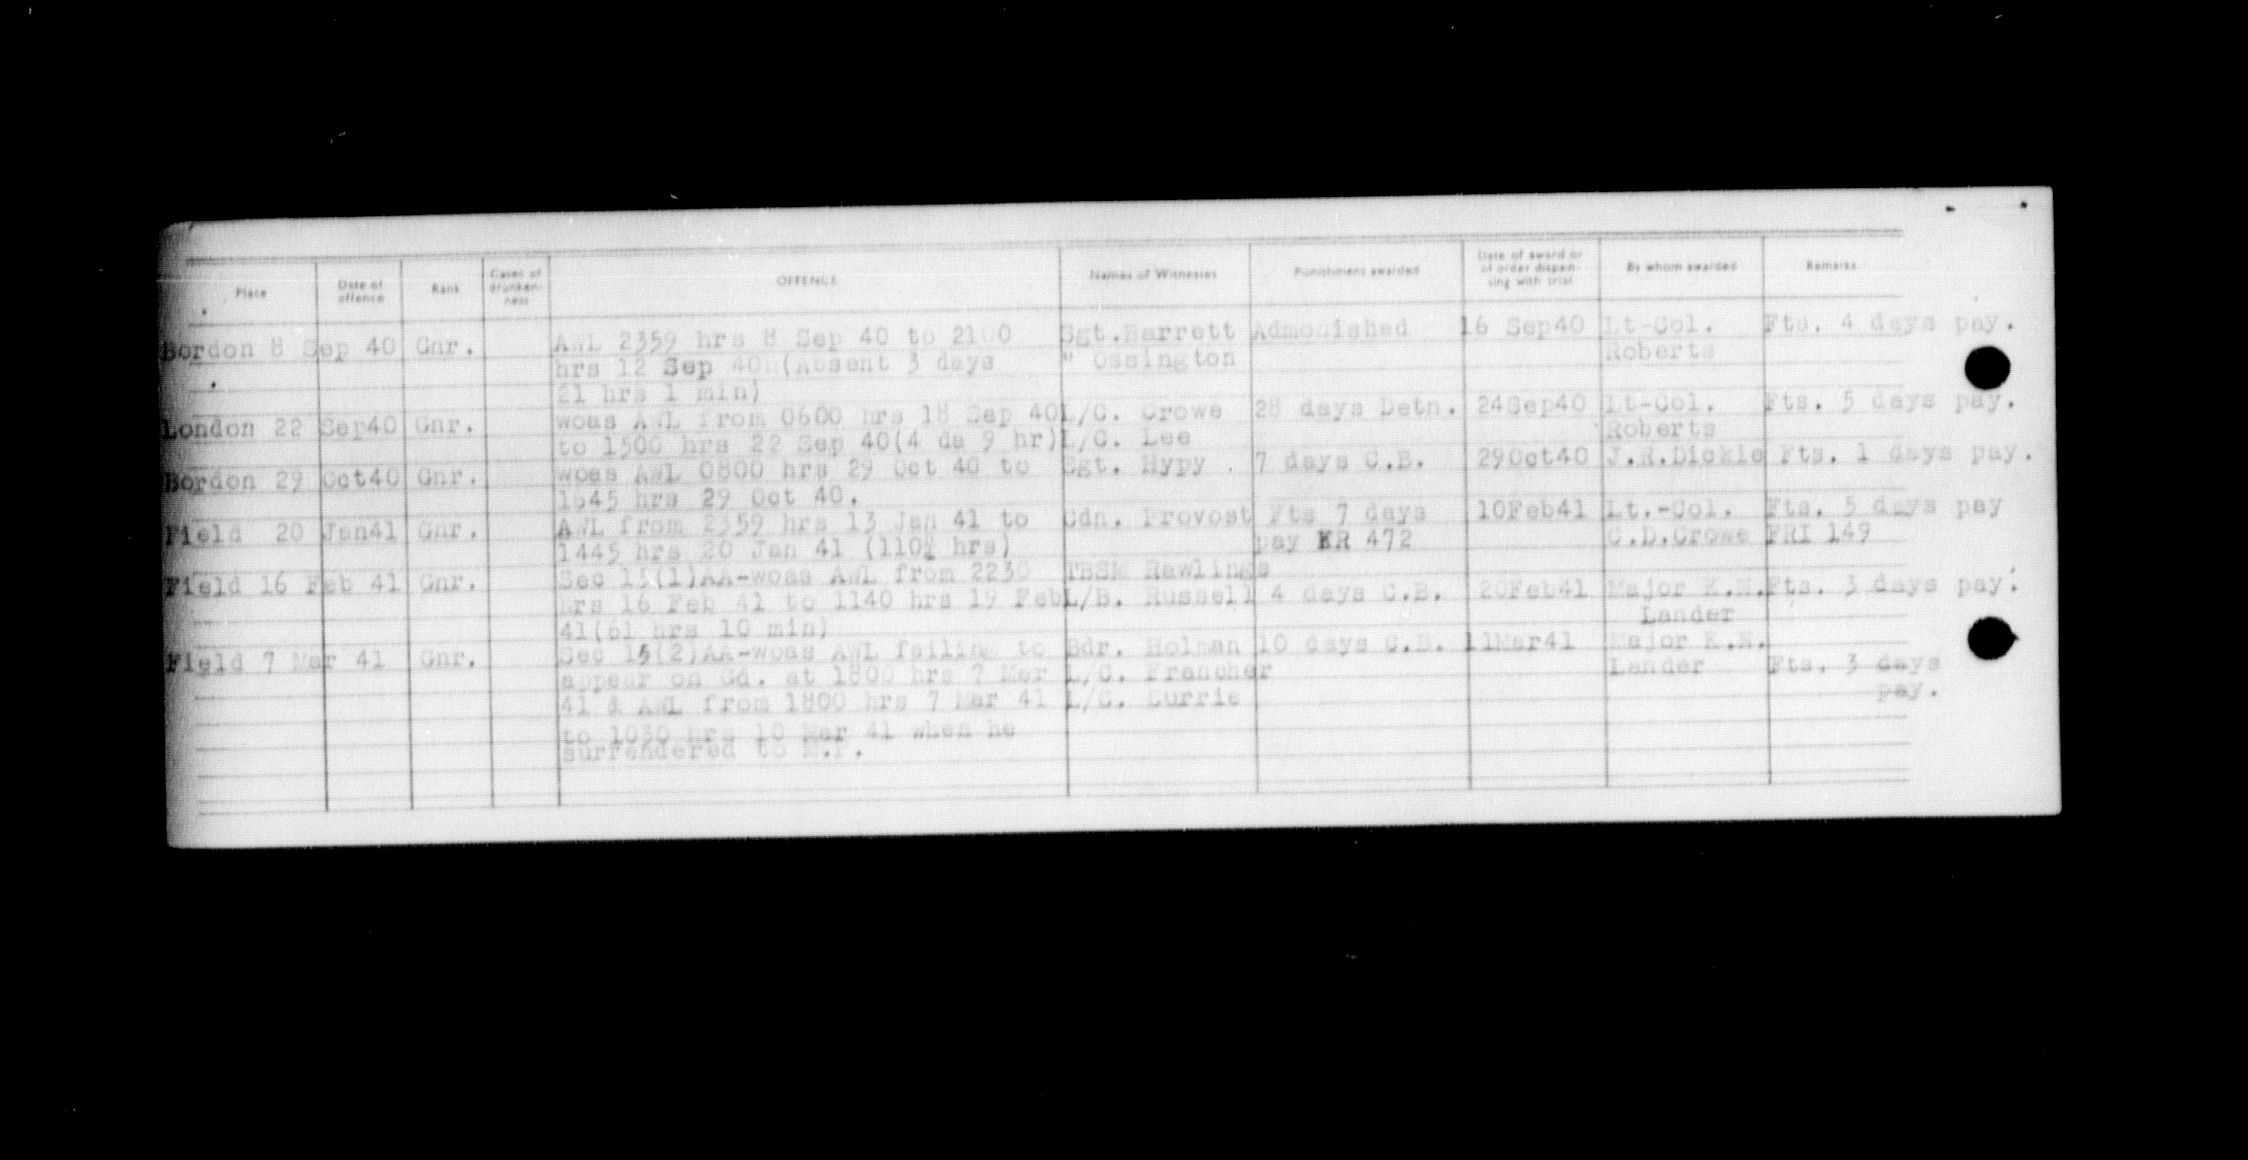 Place Date of offence Rank Cases of drunken-ness OFFENCE Names of Witnesses Punishment awarded Date of award or of order dispen-sing with trial By whom awarded Remarks
Bordon 8 Sep 40 Gnr. AWL 2359 hrs 8 Sep 40 to 2100 Sgt.Barrett Admonished 16 Sep40 Lt-Col. Fts. 4 days pay.
hrs 12 Sep 40 (Absent 3 days " Ossington Roberts
21 hrs 1 min)
London 22 Sep40 Gnr. woas AWL from 0600 hrs 18 Sep 40 L/C. Crowe 28 days Detn. 24Sep40 Lt-Col. Fts. 5 days pay.
to 1500 hrs 22 Sep 40(4 da 9 hr) L/C. Lee Roberts
Bordon 29 Oct40 Gnr. woas AWL 0800 hrs 29 Oct 40 to Sgt. Hypy . 7 days C.B. 29Oct40 J.R.Dickie Fts. 1 days pay.
1645 hrs 29 Oct 40.
Field 20 Jan41 Gnr. AWL from 2359 hrs 13 Jan 41 to Cdn. Provost Fts 7 days 10Feb41 Lt.-Col. Fts. 5 days pay
1445 hrs 20 Jan 41 hrs) pay KR 472 C.D.Crowe FRI 149
Field 16 Feb 41 Gnr. Sec 15(1)AA-woas AWL from 2230 TBSM Rawlings
hrs 16 Feb 41 to 1140 hrs 19 Feb L/B. Russell 4 days C.B. 20Feb41 Major K.N. Fts. 3 days pay.
41(61 hrs 10 min) Lander
Field 7 Mar 41 Gnr. Sec 15(2)AA-woas AWL failing to Bdr. Holman 10 days C.B. 11Mar41 Major K.N.
appear on Gd. at 1800 hrs 7 Mar L/C. Francher Lander Fts. 3 days
41 & AWL from 1800 hrs 7 Mar 41 L/C. Currie pay.
to 1030 hrs 10 Mar 41 when he
surrendered to M.P.